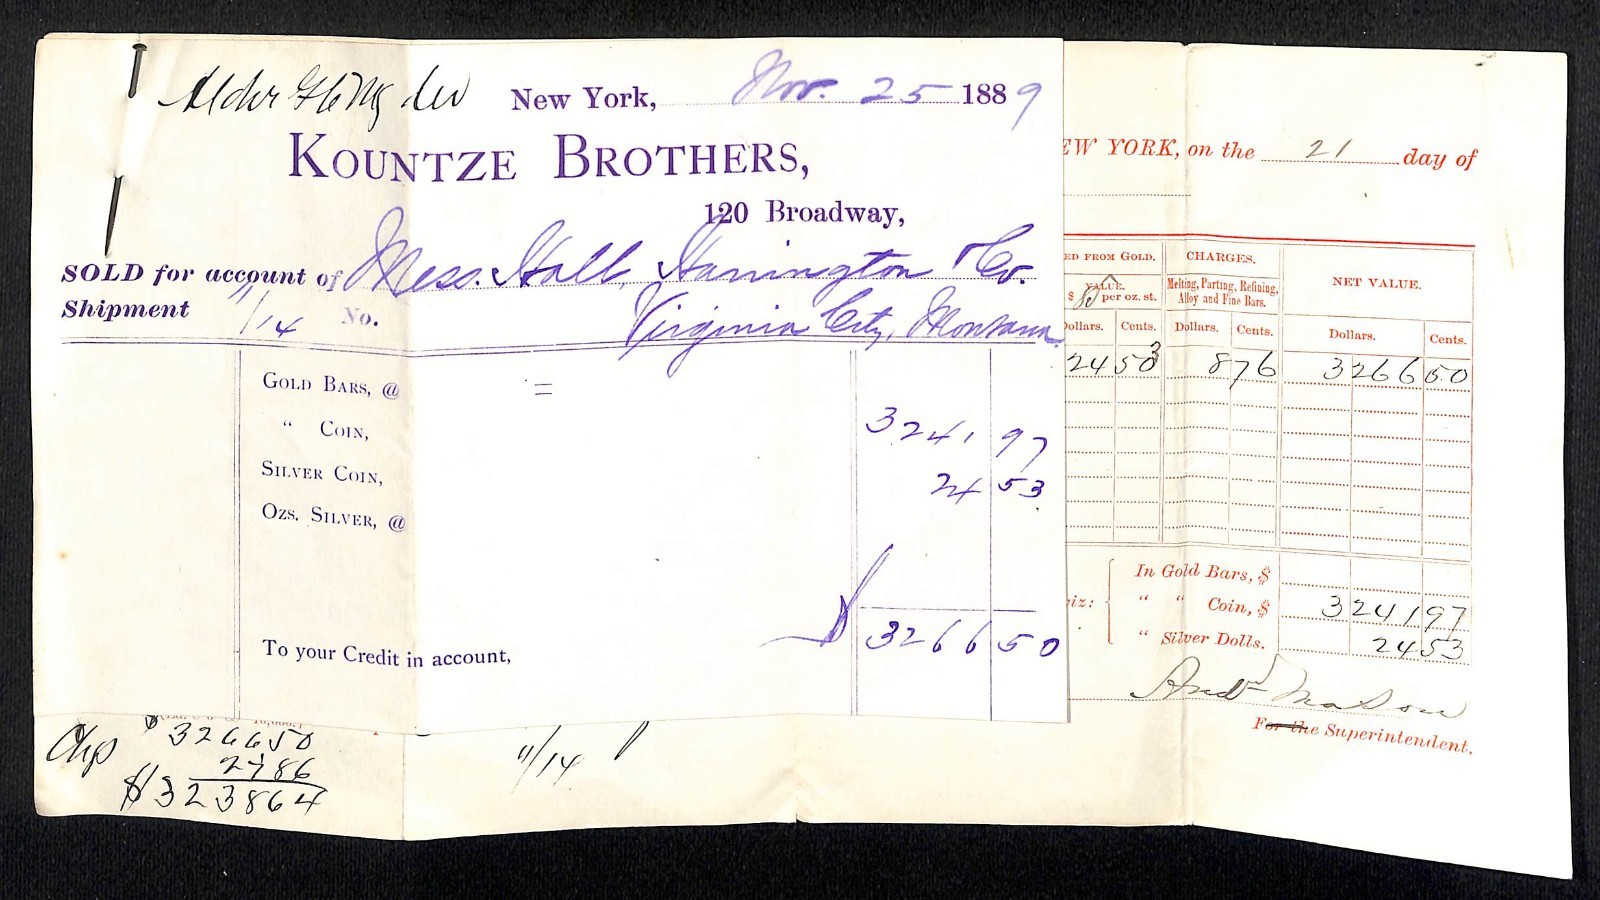 New York, Nov. 25 1889
KOUNTZE BROTHERS,
120 Broadway,
SOLD for account of Mess. Hall, Harrington & Co.
Shipment 11/14 No. Virginia City, Montana
GOLD BARS, @ =
" COIN, 3241 97
SILVER COIN, 24 53
OZS. SILVER, @
To your Credit in account, $ 3266 50
EW YORK, on the 21 day of
ED FROM GOLD. CHARGES. NET VALUE.
VALUE. Melting, Parting, Refining,
$ per oz. st. Alloy and Fine Bars.
Dollars. Cents. Dollars. Cents. Dollars. Cents.
24 53 8 76 3266 50
In Gold Bars, $
iz: " " Coin, $ 3241 97
" Silver Dolls. 24 53
Andw Mason
For the Superintendent.
$ 3266 50
27 86
$ 3238 64
11/14